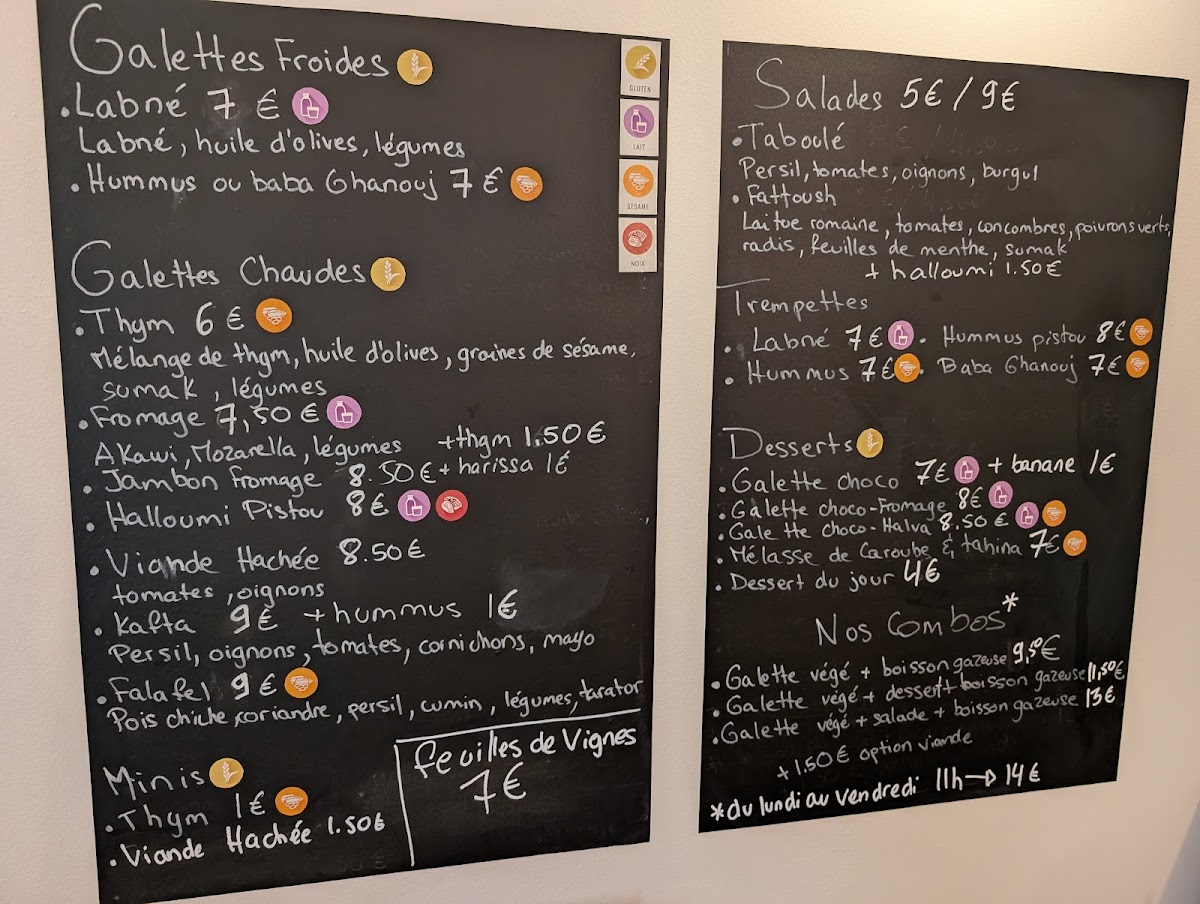 Galettes Froides
• Labné 7 €
Labné, huile d'olives, légumes
• Hummus ou baba Ghanouj 7 €
GLUTEN
LAIT
SÉSAME
NOIX
Galettes Chaudes
• Thym 6 €
Mélange de thym, huile d'olives, graines de sésame,
sumak, légumes
• Fromage 7,50 €
Akawi, Mozarella, légumes +thym 1.50 €
• Jambon fromage 8.50 € + harissa 1€
• Halloumi Pistou 8€
• Viande Hachée 8.50€
tomates, oignons
• Kafta 9€ + hummus 1€
Persil, oignons, tomates, cornichons, mayo
• Falafel 9€
Pois chiche, coriandre, persil, cumin, légumes, tarator
Minis
• Thym 1€
• Viande Hachée 1.50€
feuilles de Vignes
7€
Salades 5€ / 9€
• Taboulé
Persil, tomates, oignons, burgul
• Fattoush
Laitue romaine, tomates, concombres, poivrons verts,
radis, feuilles de menthe, sumak
+ halloumi 1.50€
Trempettes
• Labné 7€ • Hummus pistou 8€
• Hummus 7€ • Baba Ghanouj 7€
Desserts
• Galette choco 7€ + banane 1€
• Galette choco-Fromage 8€
• Galette choco-Halva 8.50€
• Mélasse de Caroube & tahina 7€
• Dessert du jour 4€
Nos Combos*
• Galette végé + boisson gazeuse 9,50€
• Galette végé + dessert + boisson gazeuse 11,50€
• Galette végé + salade + boisson gazeuse 13€
+1.50€ option viande
*du lundi au Vendredi 11h → 14€